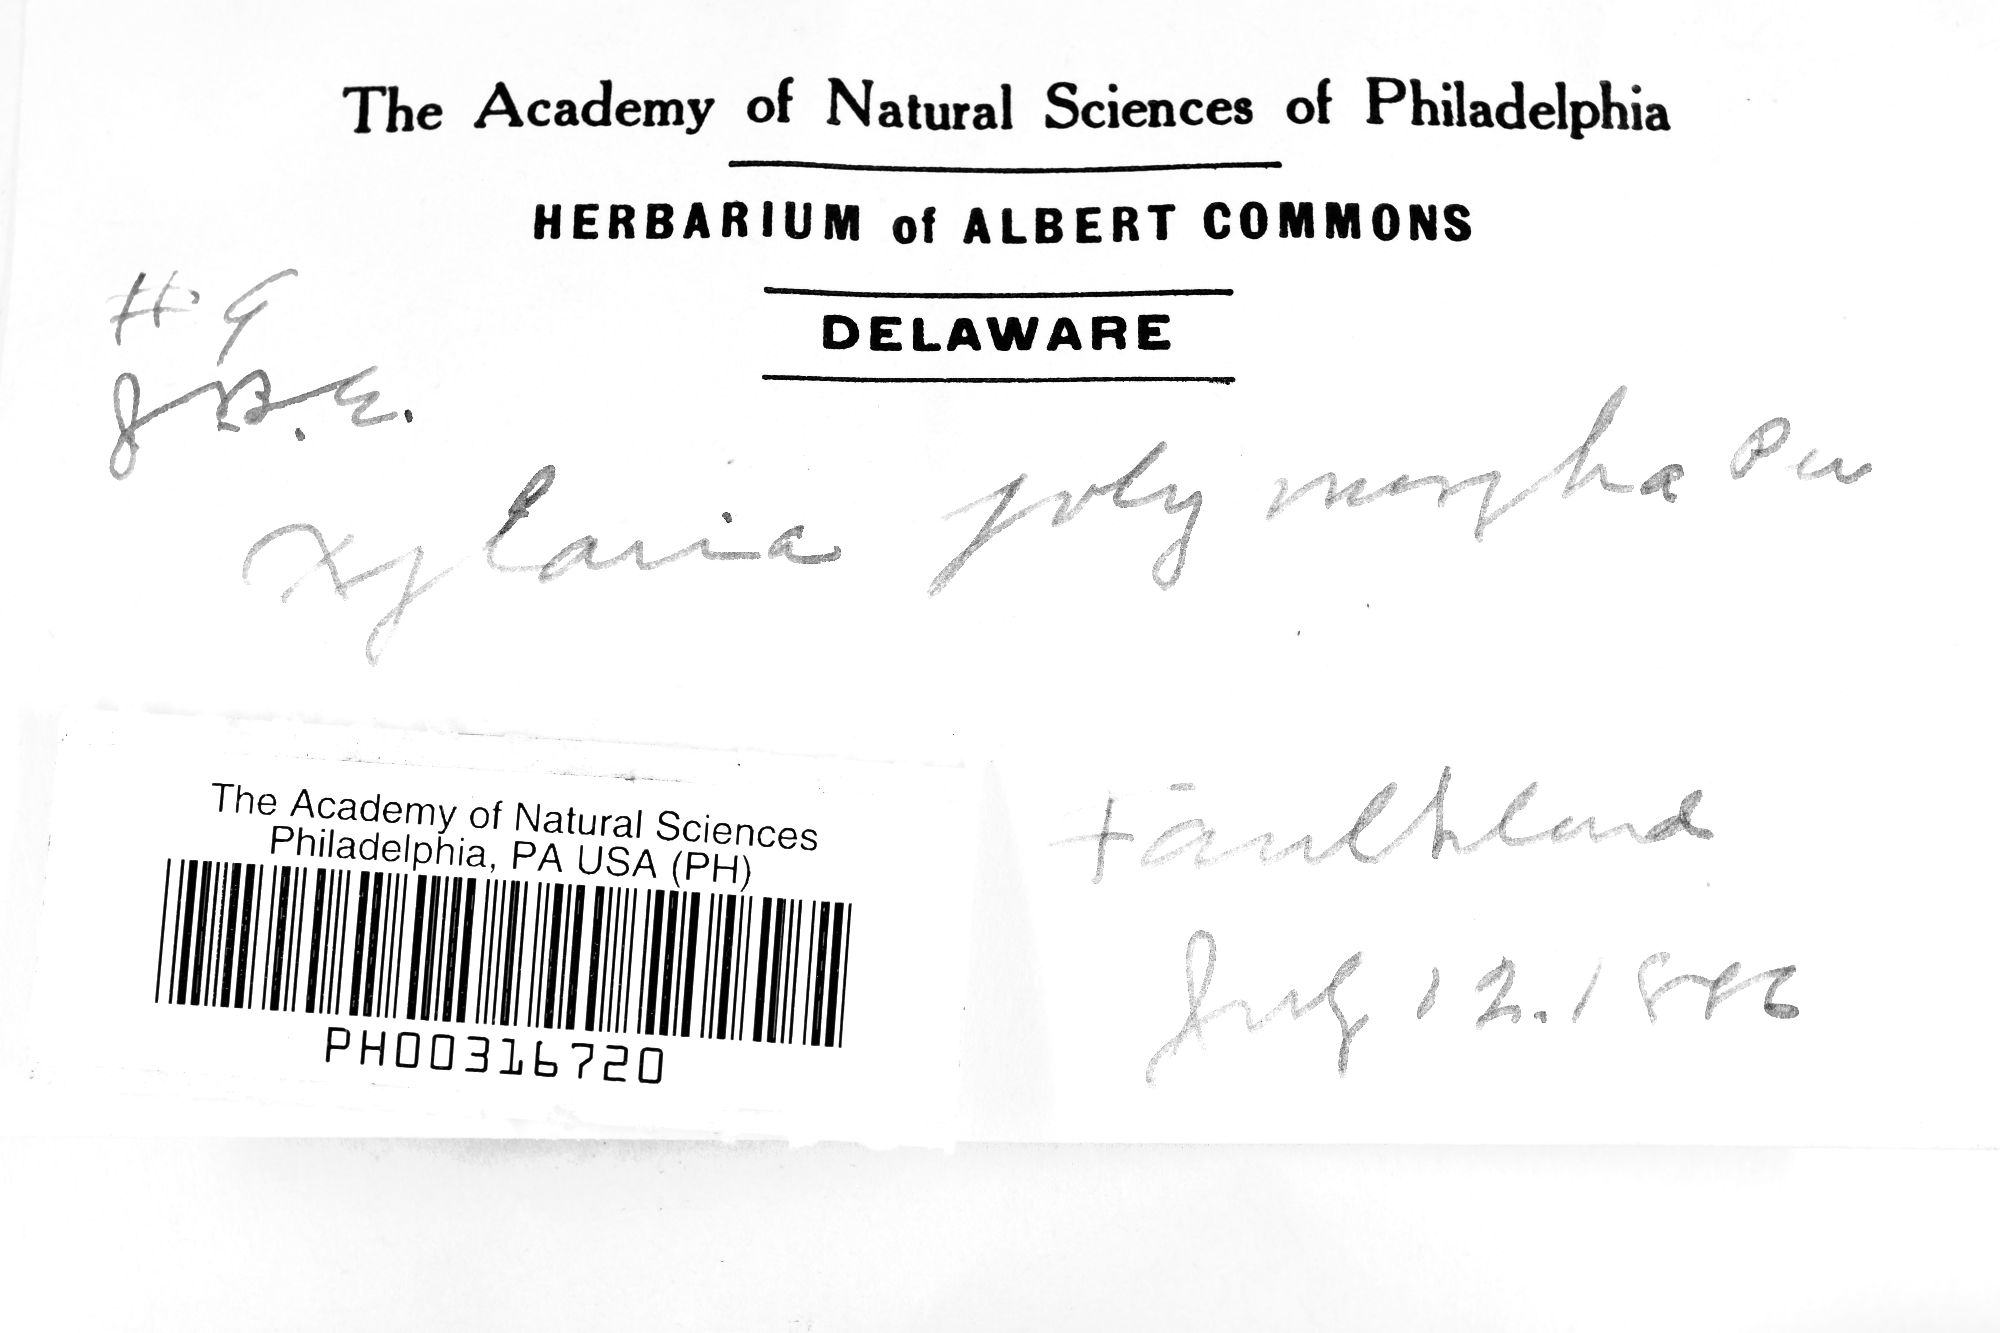 The Academy of Natural Sciences of Philadelphia
HERBARIUM of ALBERT COMMONS
DELAWARE
# 9
J.B.E.
Xylaria polymorpha Per
Faulkland
July 12. 1886
The Academy of Natural Sciences
Philadelphia, PA USA (PH)
PH00316720